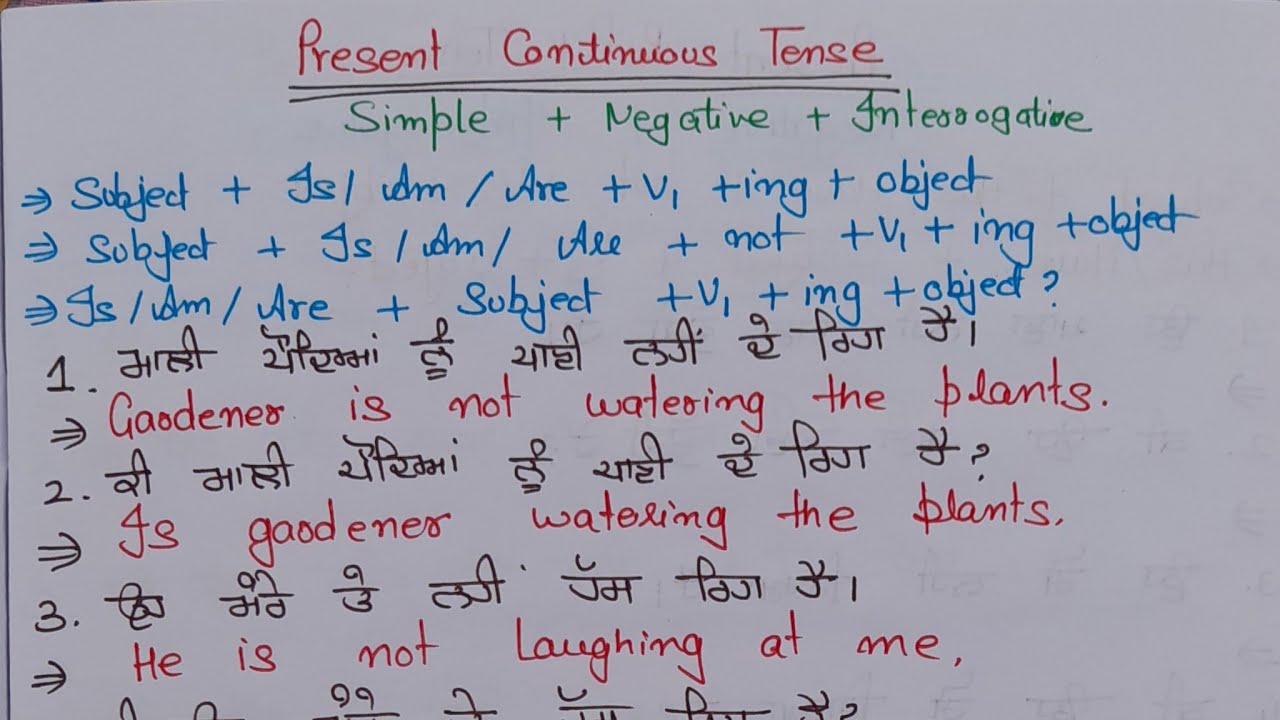 Present Continuous Tense
Simple + Negative + Interrogative
⇒ Subject + Is / Am / Are + V₁ + ing + object
⇒ Subject + Is / Am / Are + not + V₁ + ing + object
⇒ Is / Am / Are + Subject + V₁ + ing + object ?
1. ਮਾਲੀ ਪੌਦਿਆਂ ਨੂੰ ਪਾਣੀ ਨਹੀਂ ਦੇ ਰਿਹਾ ਹੈ।
⇒ Gardener is not watering the plants.
2. ਕੀ ਮਾਲੀ ਪੌਦਿਆਂ ਨੂੰ ਪਾਣੀ ਦੇ ਰਿਹਾ ਹੈ?
⇒ Is gardener watering the plants.
3. ਉਹ ਮੇਰੇ ਤੇ ਨਹੀਂ ਹੱਸ ਰਿਹਾ ਹੈ।
⇒ He is not laughing at me,